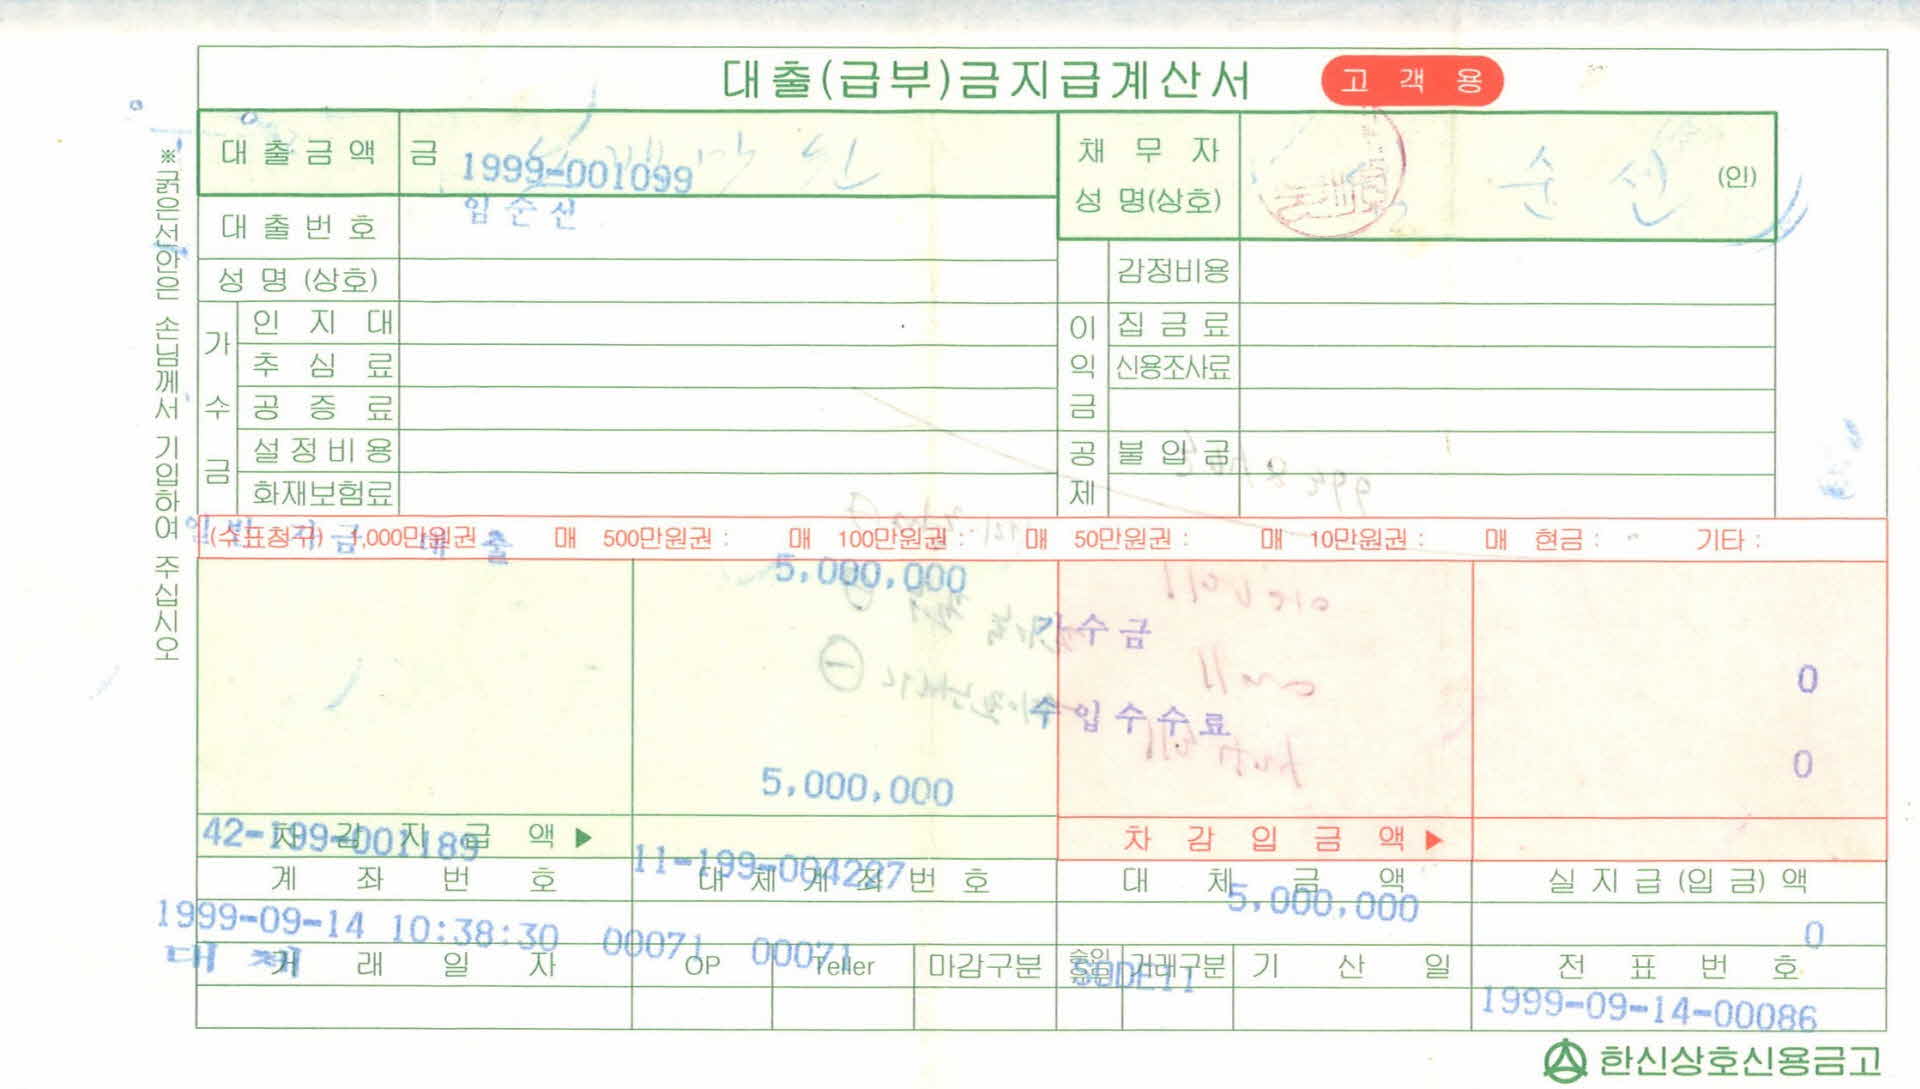 대출(급부)금지급계산서 고객용
※굵은선안은 손님께서 기입하여 주십시오
대출금액 금
1999-001099
채무자 성명(상호) 순선 (인)
대출번호
임순선
성명 (상호)
감정비용
가수금
인지대
추심료
공증료
설정비용
화재보험료
이익금공제
집금료
신용조사료
불입금
(수표청구) 1,000만원권 매 500만원권 : 매 100만원권 : 매 50만원권 : 매 10만원권 : 매 현금 : 기타 :
일반자금대출
5,000,000
가수금 0
수입수수료 0
5,000,000
차감지급액▶ 차감입금액▶
42-199-001189 11-199-004227 5,000,000 0
계좌번호 대체계좌번호 대체금액 실지급(입금)액
1999-09-14 10:38:30 00071 00071
대체
거래일자 OP Teller 마감구분 승인 거래구분 기산일 전표번호
1999-09-14-00086
한신상호신용금고